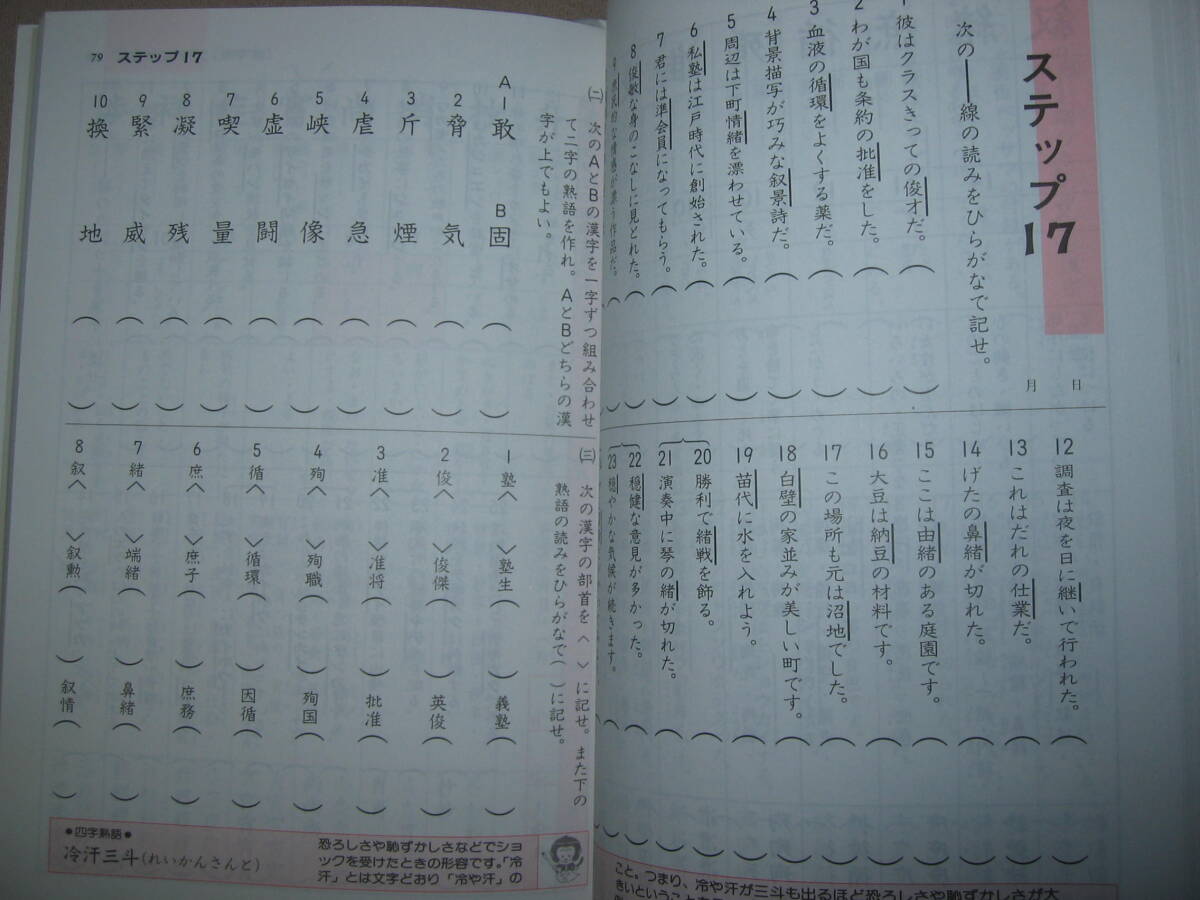 ステップ17
月 日
次の――線の読みをひらがなで記せ。
1 彼はクラスきっての俊才だ。( )
2 わが国も条約の批准をした。( )
3 血液の循環をよくする薬だ。( )
4 背景描写が巧みな叙景詩だ。( )
5 周辺は下町情緒を漂わせている。( )
6 私塾は江戸時代に創始された。( )
7 君には準会員になってもらう。( )
8 俊敏な身のこなしに見とれた。( )
12 調査は夜を日に継いで行われた。( )
13 これはだれの仕業だ。( )
14 げたの鼻緒が切れた。( )
15 ここは由緒のある庭園です。( )
16 大豆は納豆の材料です。( )
17 この場所も元は沼地でした。( )
18 白壁の家並みが美しい町です。( )
19 苗代に水を入れよう。( )
20 勝利で緒戦を飾る。( )
21 演奏中に琴の緒が切れた。( )
22 穏健な意見が多かった。( )
23 穏やかな気候が続きます。( )
こと。つまり、冷や汗が三斗も出るほど恐ろしさや恥ずかしさが大
79 ステップ17
㈡ 次のAとBの漢字を一字ずつ組み合わせ
て二字の熟語を作れ。AとBどちらの漢
字が上でもよい。
A B
1 敢 固( )
2 脅 気( )
3 斤 煙( )
4 虐 急( )
5 峡 像( )
6 虚 闘( )
7 喫 量( )
8 凝 残( )
9 緊 威( )
10 換 地( )
㈢ 次の漢字の部首を〈 〉に記せ。また下の
熟語の読みをひらがなで( )に記せ。
1 塾〈 〉塾生( )義塾( )
2 俊〈 〉俊傑( )英俊( )
3 准〈 〉准将( )批准( )
4 殉〈 〉殉職( )殉国( )
5 循〈 〉循環( )因循( )
6 庶〈 〉庶子( )庶務( )
7 緒〈 〉端緒( )鼻緒( )
8 叙〈 〉叙勲( )叙情( )
●四字熟語●
冷汗三斗(れいかんさんと)
恐ろしさや恥ずかしさなどでショ
ックを受けたときの形容です。「冷
汗」とは文字どおり「冷や汗」の